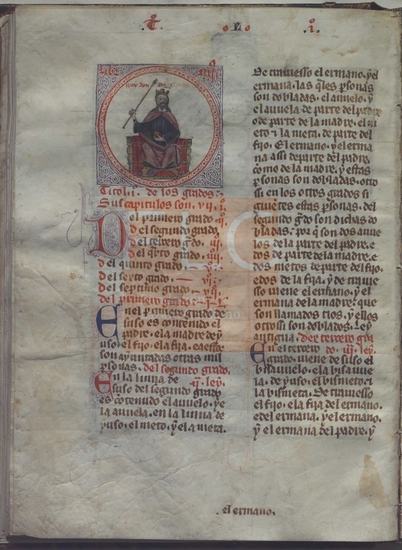 T o l o i.
Titol. i. de los grados:
Sus capitulos son. vij.
Del primero grado
del segundo grado,
del tercero gdo.
del qrto grado.
del quinto grado.
del sexto grado.
del septimo grado.
del primero grado
En el primero grado de
suso es contenido el
padre, e la madre de y
uso, el fijo, e la fija,
son
psonas. del segundo grado,
En la linna de
suso del segundo grado
es contenido el auuelo, e
la auuela, en la linna de
yuso, el nieto, y ela nieta.
De trauiesso el ermano, y el
ermana, las qles psonas
son dobladas, el auuelo, y
el auuela de parte del padre
o de parte de la madre, el ni
eto e la nieta, de parte del
fijo. El ermano, y el erma
na assi de parte del padre,
como de la madre, y estas
psonas son dobladas, otro
si en los otros grados si
guientes estas psonas, del
segundo gdo son dichas do
bladas: por q son dos auue
los, de la parte del padre, e
dos de parte de la madre, e
dos nietos de parte del fijo,
e dos de la fija, y de traui
sso uiene el ermano, y el
ermana de la madre: que
son llamados tios, y ellos
otrossi son doblados. Ley
antigua. Del tercero gdo
En el tercero iij. ley.
grado, uiene de suso el
bisauuelo, e la bisauue
la, de yuso, el bisnieto, e
la bisnieta. De trauiesso
el fijo, e la fija del ermano,
e del ermana, y el ermano,
y el ermana del padre, y
el ermano.